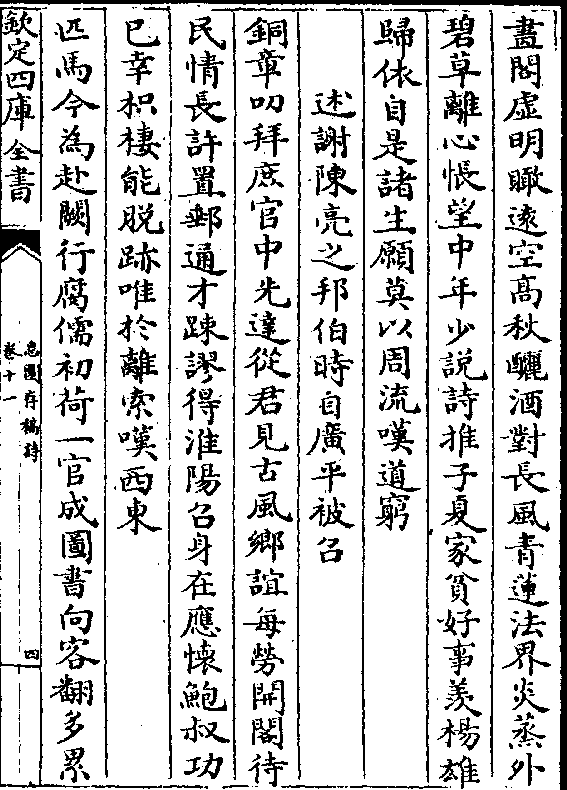 畫閣虛明瞰遠空髙秋釃酒對長風青蓮法界炎蒸外
碧草離心悵望中年少説詩推子夏家貧好事羨楊雄
歸依自是諸生願莫以周流嘆道窮
述謝陳亮之邦伯時自廣平被召
銅章叨拜庶官中先達從君見古風鄉誼每勞開閣待
民情長許置郵通才踈謬得淮陽召身在應懷鮑叔功
已幸枳棲能脱跡唯於離索嘆西東
匹馬今為赴闕行腐儒初荷一官成圖書向客翻多累
欽定四庫全書
息園存稿詩
卷十一
四